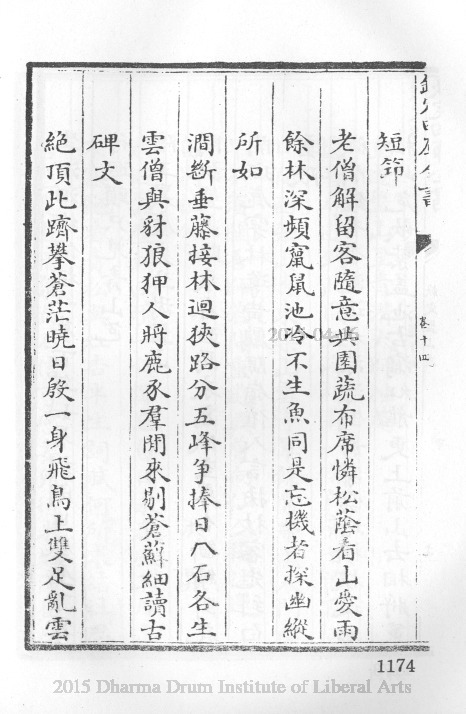 欽定四庫全書
卷十四
短笻
老僧解留客隨意共園蔬布席憐松蔭看山愛雨
餘林深頻竄鼠池冷不生魚同是忘機者探幽縱
所如
澗斷垂藤接林迴狹路分五峰爭捧日八石各生
雲僧與豺狼狎人將鹿豕羣閒來剔蒼蘚細讀古
碑文
絶頂此躋攀蒼茫曉日殷一身飛鳥上雙足亂雲
1174
2015 Dharma Drum Institute of Liberal Arts